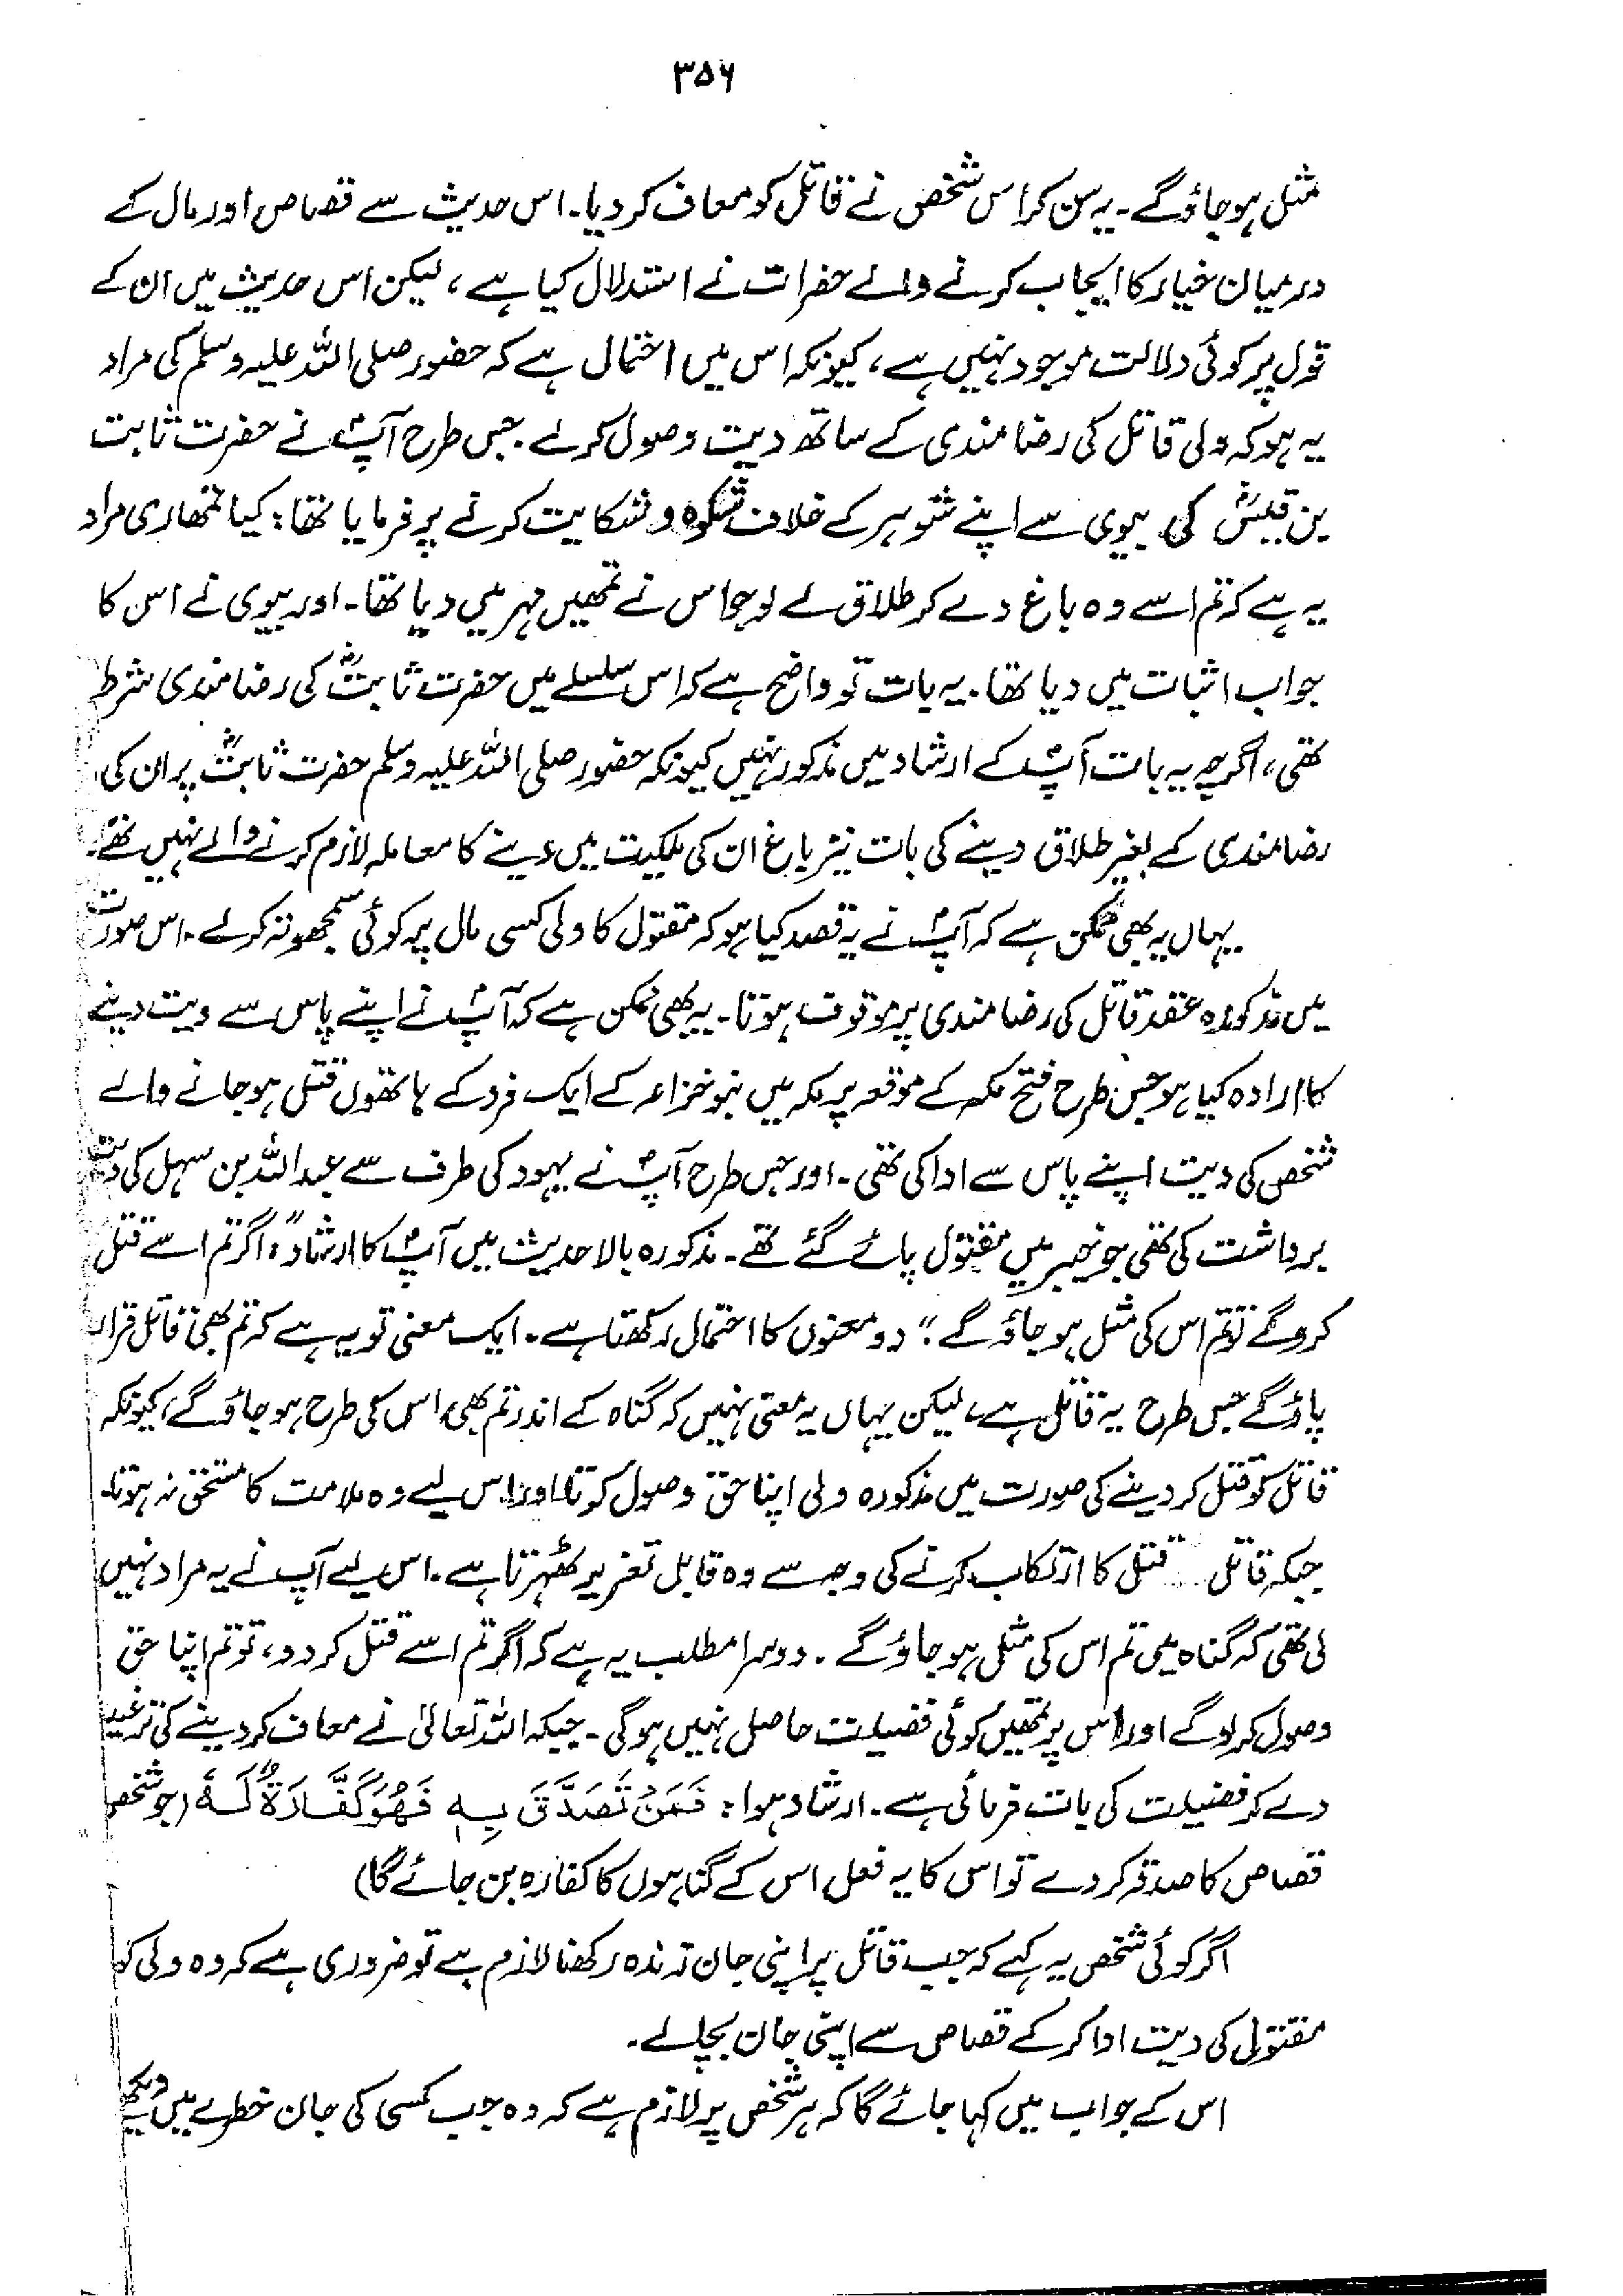 ۳۵۶
مثل ہو جاؤ گے۔ یہ سن کر اس شخص نے قاتل کو معاف کر دیا۔ اس حدیث سے قصاص اور مال کے
درمیان خیار کا ایجاب کرنے والے حضرات نے استدلال کیا ہے، لیکن اس حدیث میں ان کے
قول پر کوئی دلالت موجود نہیں ہے، کیونکہ اس میں احتمال ہے کہ حضور صلی اللہ علیہ وسلم کی مراد
یہ ہو کہ ولی قاتل کی رضامندی کے ساتھ دیت وصول کرلے۔ جس طرح آپؐ نے حضرت ثابت
بن قیسؓ کی بیوی سے اپنے شوہر کے خلاف شکوہ و شکایت کرنے پر فرمایا تھا: کیا تمھاری مراد
یہ ہے کہ تم اسے وہ باغ دے کر طلاق لے لو جو اس نے تمھیں مہر میں دیا تھا۔ اور بیوی نے اس کا
جواب اثبات میں دیا تھا۔ یہ بات تو واضح ہے کہ اس سلسلے میں حضرت ثابتؓ کی رضامندی شرط
تھی، اگرچہ یہ بات آپؐ کے ارشاد میں مذکور نہیں کیونکہ حضور صلی اللہ علیہ وسلم حضرت ثابتؓ پر ان کی
رضامندی کے بغیر طلاق دینے کی بات نیز باغ ان کی ملکیت میں دینے کا معاملہ لازم کرنے والے نہیں تھے۔
یہاں یہ بھی ممکن ہے کہ آپؐ نے یہ قصد کیا ہو کہ مقتول کا ولی کسی مال پر کوئی سمجھوتہ کرلے۔ اس صورت
میں مذکورہ عقد قاتل کی رضامندی پر موقوف ہوتا۔ یہ بھی ممکن ہے کہ آپؐ نے اپنے پاس سے دیت دینے
کا ارادہ کیا ہو جس طرح فتح مکہ کے موقعہ پر مکہ میں بنو خزاعہ کے ایک فرد کے ہاتھوں قتل ہو جانے والے
شخص کی دیت اپنے پاس سے ادا کی تھی۔ اور جس طرح آپؐ نے یہود کی طرف سے عبداللہ بن سہل کی دیت
برداشت کی تھی جو خیبر میں مقتول پائے گئے تھے۔ مذکورہ بالا حدیث میں آپؐ کا ارشاد: "اگر تم اسے قتل
کرو گے تو تم اس کی مثل ہو جاؤ گے۔" دو معنوں کا احتمال رکھتا ہے۔ ایک معنی تو یہ ہے کہ تم بھی قاتل قرار
پاؤ گے جس طرح یہ قاتل ہے، لیکن یہاں یہ معنی نہیں کہ گناہ کے اندر تم بھی اس کی طرح ہو جاؤ گے، کیونکہ
قاتل کو قتل کر دینے کی صورت میں مذکورہ ولی اپنا حق وصول کرتا اور اس لیے وہ ملامت کا مستحق نہ ہوتا۔
جبکہ قاتل قتل کا ارتکاب کرنے کی وجہ سے وہ قابل تعزیر ٹھہرتا ہے۔ اس لیے آپ نے یہ مراد نہیں
لی تھی کہ گناہ میں تم اس کی مثل ہو جاؤ گے۔ دوسرا مطلب یہ ہے کہ اگر تم اسے قتل کر دو، تو تم اپنا حق
وصول کر لو گے اور اس پر تمھیں کوئی فضیلت حاصل نہیں ہوگی۔ جبکہ اللہ تعالیٰ نے معاف کر دینے کی ترغیب
دے کر فضیلت کی بات فرمائی ہے۔ ارشاد ہوا: فَمَنْ تَصَدَّقَ بِهٖ فَهُوَ كَفَّارَةٌ لَهٗ (جو شخص
قصاص کا صدقہ کر دے تو اس کا یہ فعل اس کے گناہوں کا کفارہ بن جائے گا)
اگر کوئی شخص یہ کہے کہ جب قاتل پر اپنی جان زندہ رکھنا لازم ہے تو ضروری ہے کہ وہ ولی کو
مقتول کی دیت ادا کر کے قصاص سے اپنی جان بچالے۔
اس کے جواب میں کہا جائے گا کہ ہر شخص پر لازم ہے کہ وہ جب کسی کی جان خطرے میں دیکھے